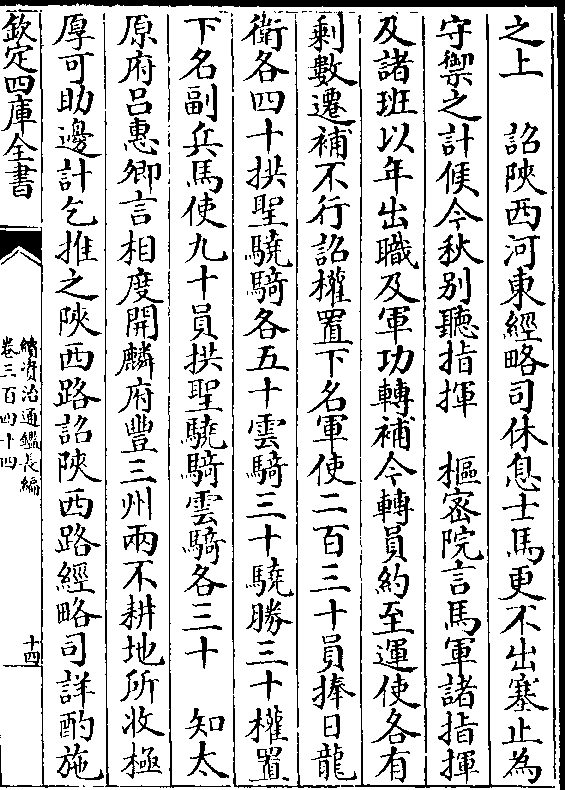 之上　　詔陝西河東經略司休息士馬更不出塞止為
守禦之計候今秋别聽指揮　　樞密院言馬軍諸指揮
及諸班以年出職及軍功轉補今轉員約至運使各有
剩數遷補不行詔權置下名軍使二百三十員捧日龍
衛各四十拱聖驍騎各五十雲騎三十驍勝三十權置
下名副兵馬使九十員拱聖驍騎雲騎各三十　　知太
原府吕惠卿言相度開麟府豐三州兩不耕地所收極
厚可助邊計乞推之陝西路詔陝西路經略司詳酌施
欽定四庫全書
續資治通鑑長編
卷三百四十四
十四